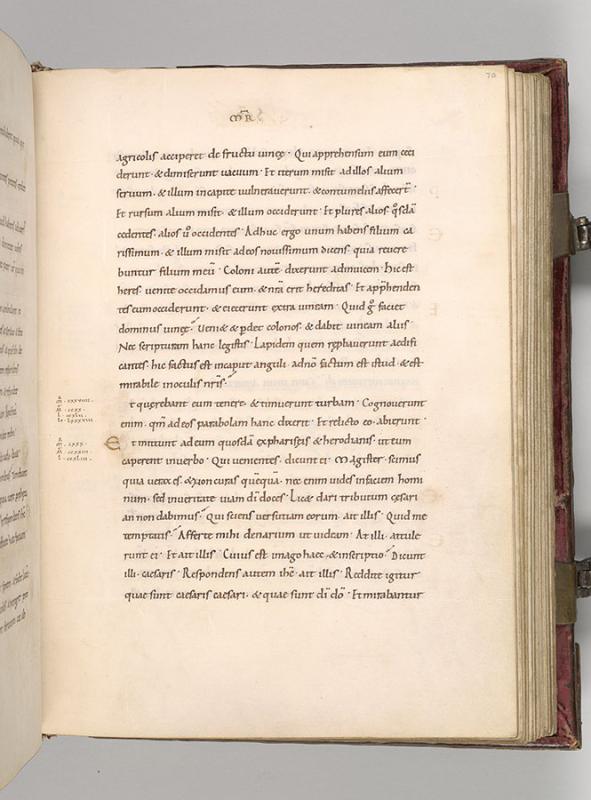 70
MR
agricolis acciperet de fructu uineę · Qui apprehensum eum ceci
derunt · & dimiserunt uacuum · Et iterum misit ad illos alium
seruum · & illum in capite uulnerauerunt · & contumeliis affecer̄
Et rursum alium misit · & illum occiderunt · Et plures alios q̊sdā
cedentes · alios ů occidentes · Adhuc ergo unum habens filium ca
rissimum · & illum misit ad eos nouissimum dicens · quia reuere
buntur filium meū · Coloni autē dixerunt adinuicem · Hic est
heres · uenite occidamus eum · & nr̄a erit hereditas · Et apprhenden
tes eum occiderunt · & eiecerunt extra uineam · Quid g̊ faciet
dominus uineę · Veni& & p̄det colonos · & dabit uineam aliis
Nec scripturam hanc legistis · Lapidem quem reprobauerunt aedifi
cantes · hic factus est in caput anguli · a dnō factum est istud · & est
mirabile in oculis nr̄is ·
t quęrebant eum tenere · & timuerunt turbam · Cognouerunt
enim · qm̄ ad eos parabolam hanc dixerit · Et relicto eo · abierunt ·
Et mittunt ad eum quosdā ex pharisęis & herodianis · ut eum
caperent in uerbo · Qui uenientes · dicunt ei · Magister · scimus
quia uerax es · & non curas quēquā · nec enim uides in faciem homi
num · sed in ueritate uiam dī doces · Lic& dari tributum cęsari
an non dabimus · Qui sciens uersutiam eorum · ait illis · Quid me
temptatis · Afferte mihi denarium ut uideam · At illi · attule
runt ei · Et ait illis · Cuius est imago haec · & inscriptio · Dicunt
illi · caesaris · Respondens autem ihc̄ · ait illis · Reddite igitur
quae sunt caesaris caesari · & quae sunt dī dō · Et mirabantur